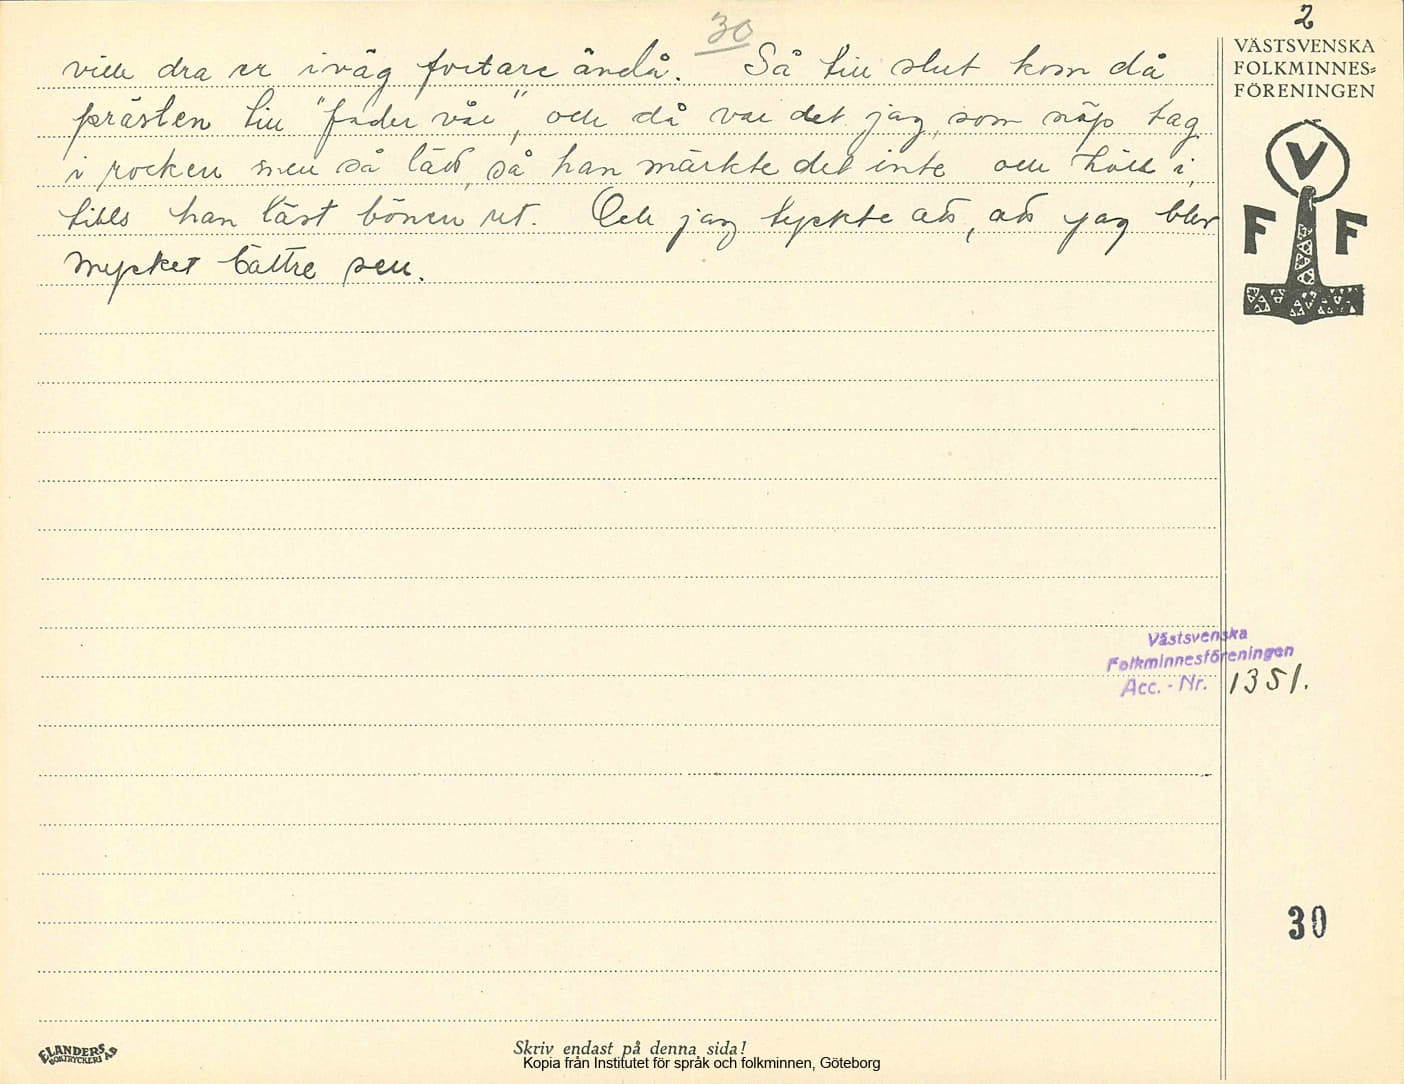 30
2
VÄSTSVENSKA
FOLKMINNES=
FÖRENINGEN
ville dra er iväg fortare ändå. Så till slut kom då
prästen till "fader vår", och då var det jag, som näp tag
i rocken men så lätt, så han märkte det inte och höll i,
tills han läst bönen ut. Och jag tyckte att, att jag blev
mycket bättre sen.
V
F F
Västsvenska
Folkminnesföreningen
Acc. - Nr. 1351.
30
ELANDERS
BOKTRYCKERI AB
Skriv endast på denna sida!
Kopia från Institutet för språk och folkminnen, Göteborg